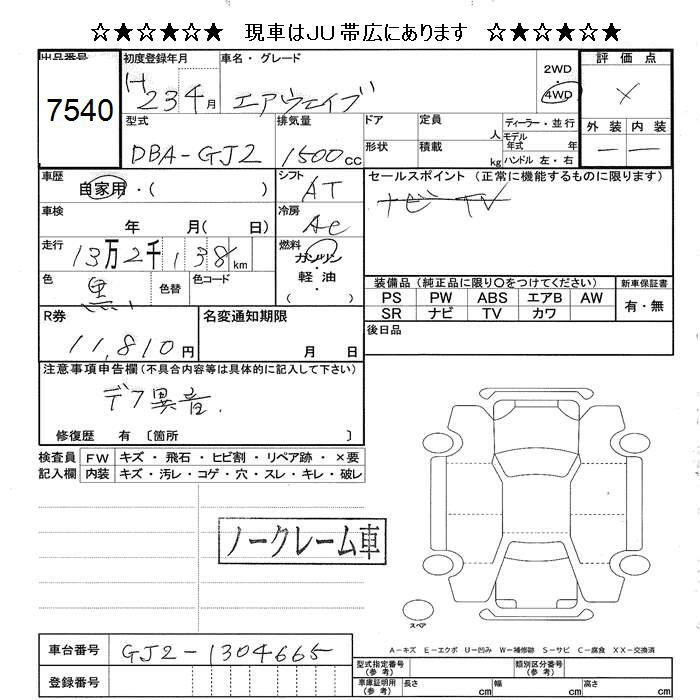 ☆★☆★☆★ 現車はJU帯広にあります ☆★☆★☆★
出品番号 初度登録年月 車名・グレード 2WD 評価点
7540 H 23 4月 エアウェイブ 4WD ×
型式 排気量 ドア 定員 人 ディーラー・並行 外装 内装
DBA-GJ2 1500cc 形状 積載 kg モデル年式 年 ー ー
ハンドル 左・右
車歴 自家用・( ) シフト AT セールスポイント(正常に機能するものに限ります)
車検 年 月( 日) 冷房 AC ナビ TV
走行 13万2千138km 燃料 ガソリン
軽油
( )
色 黒 色替 色コード 装備品(純正品に限り○をつけてください) 新車保証書
PS PW ABS エアB AW 有・無
SR ナビ TV カワ
R券 11,810円 名変通知期限 月 日 後日品
注意事項申告欄(不具合内容等は具体的に記入して下さい)
デフ異音.
修復歴 有 〔箇所 〕
検査員 FW キズ・飛石・ヒビ割・リペア跡・×要
記入欄 内装 キズ・汚レ・コゲ・穴・スレ・キレ・破レ
ノークレーム車
スペア
A-キズ E-エクボ U-凹み W-補修跡 S-サビ C-腐食 XX-交換済
車台番号 GJ2-1304665 型式指定番号(参考) 類別区分番号(参考)
登録番号 車庫証明用(参考) 長さ cm 幅 cm 高さ cm